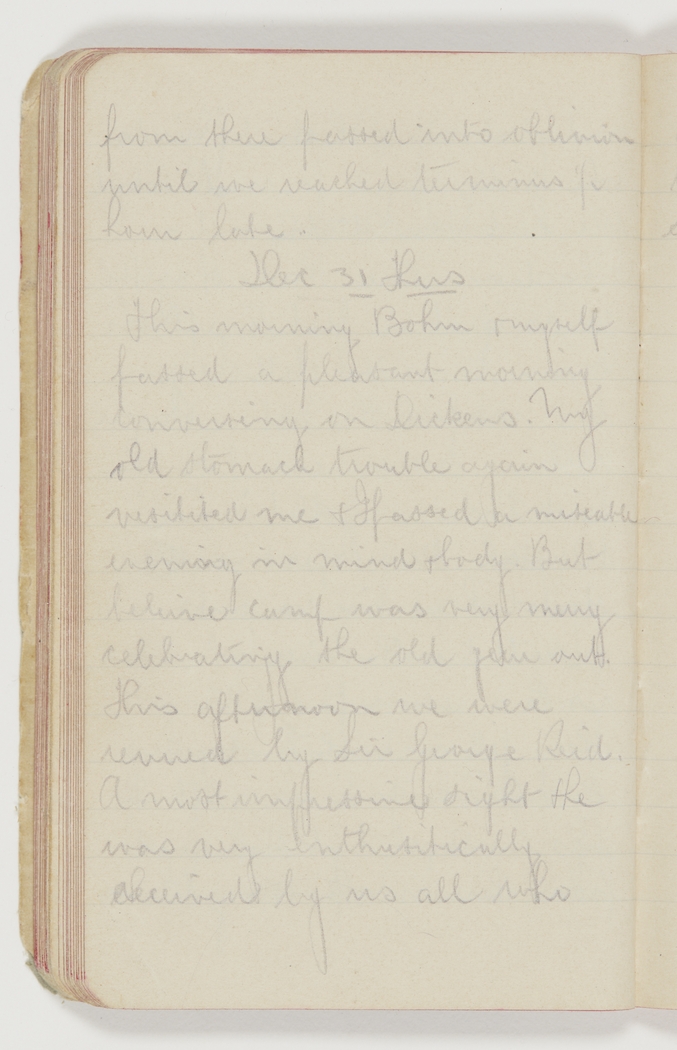 from there passed into oblivion
until we reached terminus
hom late.
Dec 31 Thurs
This morning Bohm & myself
passed a pleasant morning
conversing on Dickens. My
old stomach trouble again
visitited me & I passed a miseable
evening in mind & body. But
beleive camp was very merry
celebrating the old year out.
This afternoon we were
by Sir George Reid.
A most impressive sight He
was very enthusiticully
by us all who